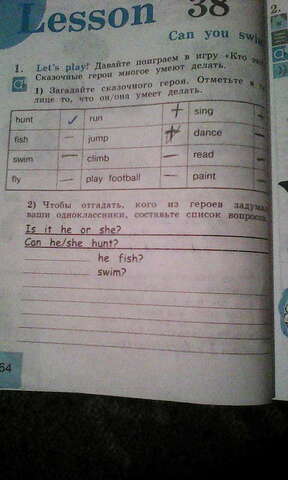 Lesson 38
Can you swi
1. Let's play! Давайте поиграем в игру «Кто
Сказочные герои многое умеют делать.
1) Загадайте сказочного героя. Отметьте в
лице то, что он/она умеет делать.
hunt ✓ run + sing
fish – jump + dance
swim – climb – read
fly – play football – paint
2) Чтобы отгадать, кого из героев задума
ваши одноклассники, составьте список вопросо
Is it he or she?
Can he/she hunt?
he fish?
swim?
64
2.